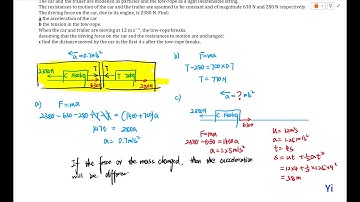 The car and the trailer are modelled as particles and the tow-rope as a light inextensible string.
The resistances to motion of the car and the trailer are assumed to be constant and of magnitude 630 N and 280 N respectively.
The driving force on the car, due to its engine, is 2380 N. Find:
a the acceleration of the car
b the tension in the tow-rope.
When the car and trailer are moving at 12 m s⁻¹, the tow-rope breaks.
Assuming that the driving force on the car and the resistances to motion are unchanged:
c find the distance moved by the car in the first 4 s after the tow-rope breaks.
a=0.7m/s²
2380N
T
T
630N
280N
a)
F=ma
a=0.7m/s²
b)
F=ma
T-280=700×0.7
T=770N
c)
a=?m/s²
2380N
630N
F=ma
2380-630=1400a
a=1.25m/s²
u=12m/s
a=1.25m/s²
t=4s
s=ut+½at²
=12×4+½×1.25×4²
=58m
If the force or the mass changed, then the acceleration
will be different
Yi